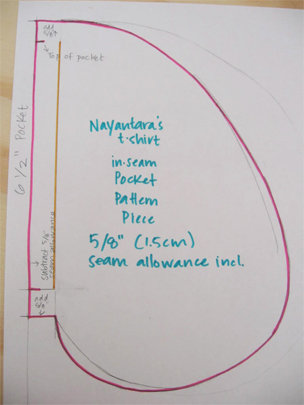 add
5/8"
Top of pocket
6 1/2" Pocket
Nayantara's
t-shirt
in-seam
Pocket
Pattern
Piece
5/8" (1.5cm)
seam allowance incl.
subtract 5/8"
seam allowance
add
5/8"